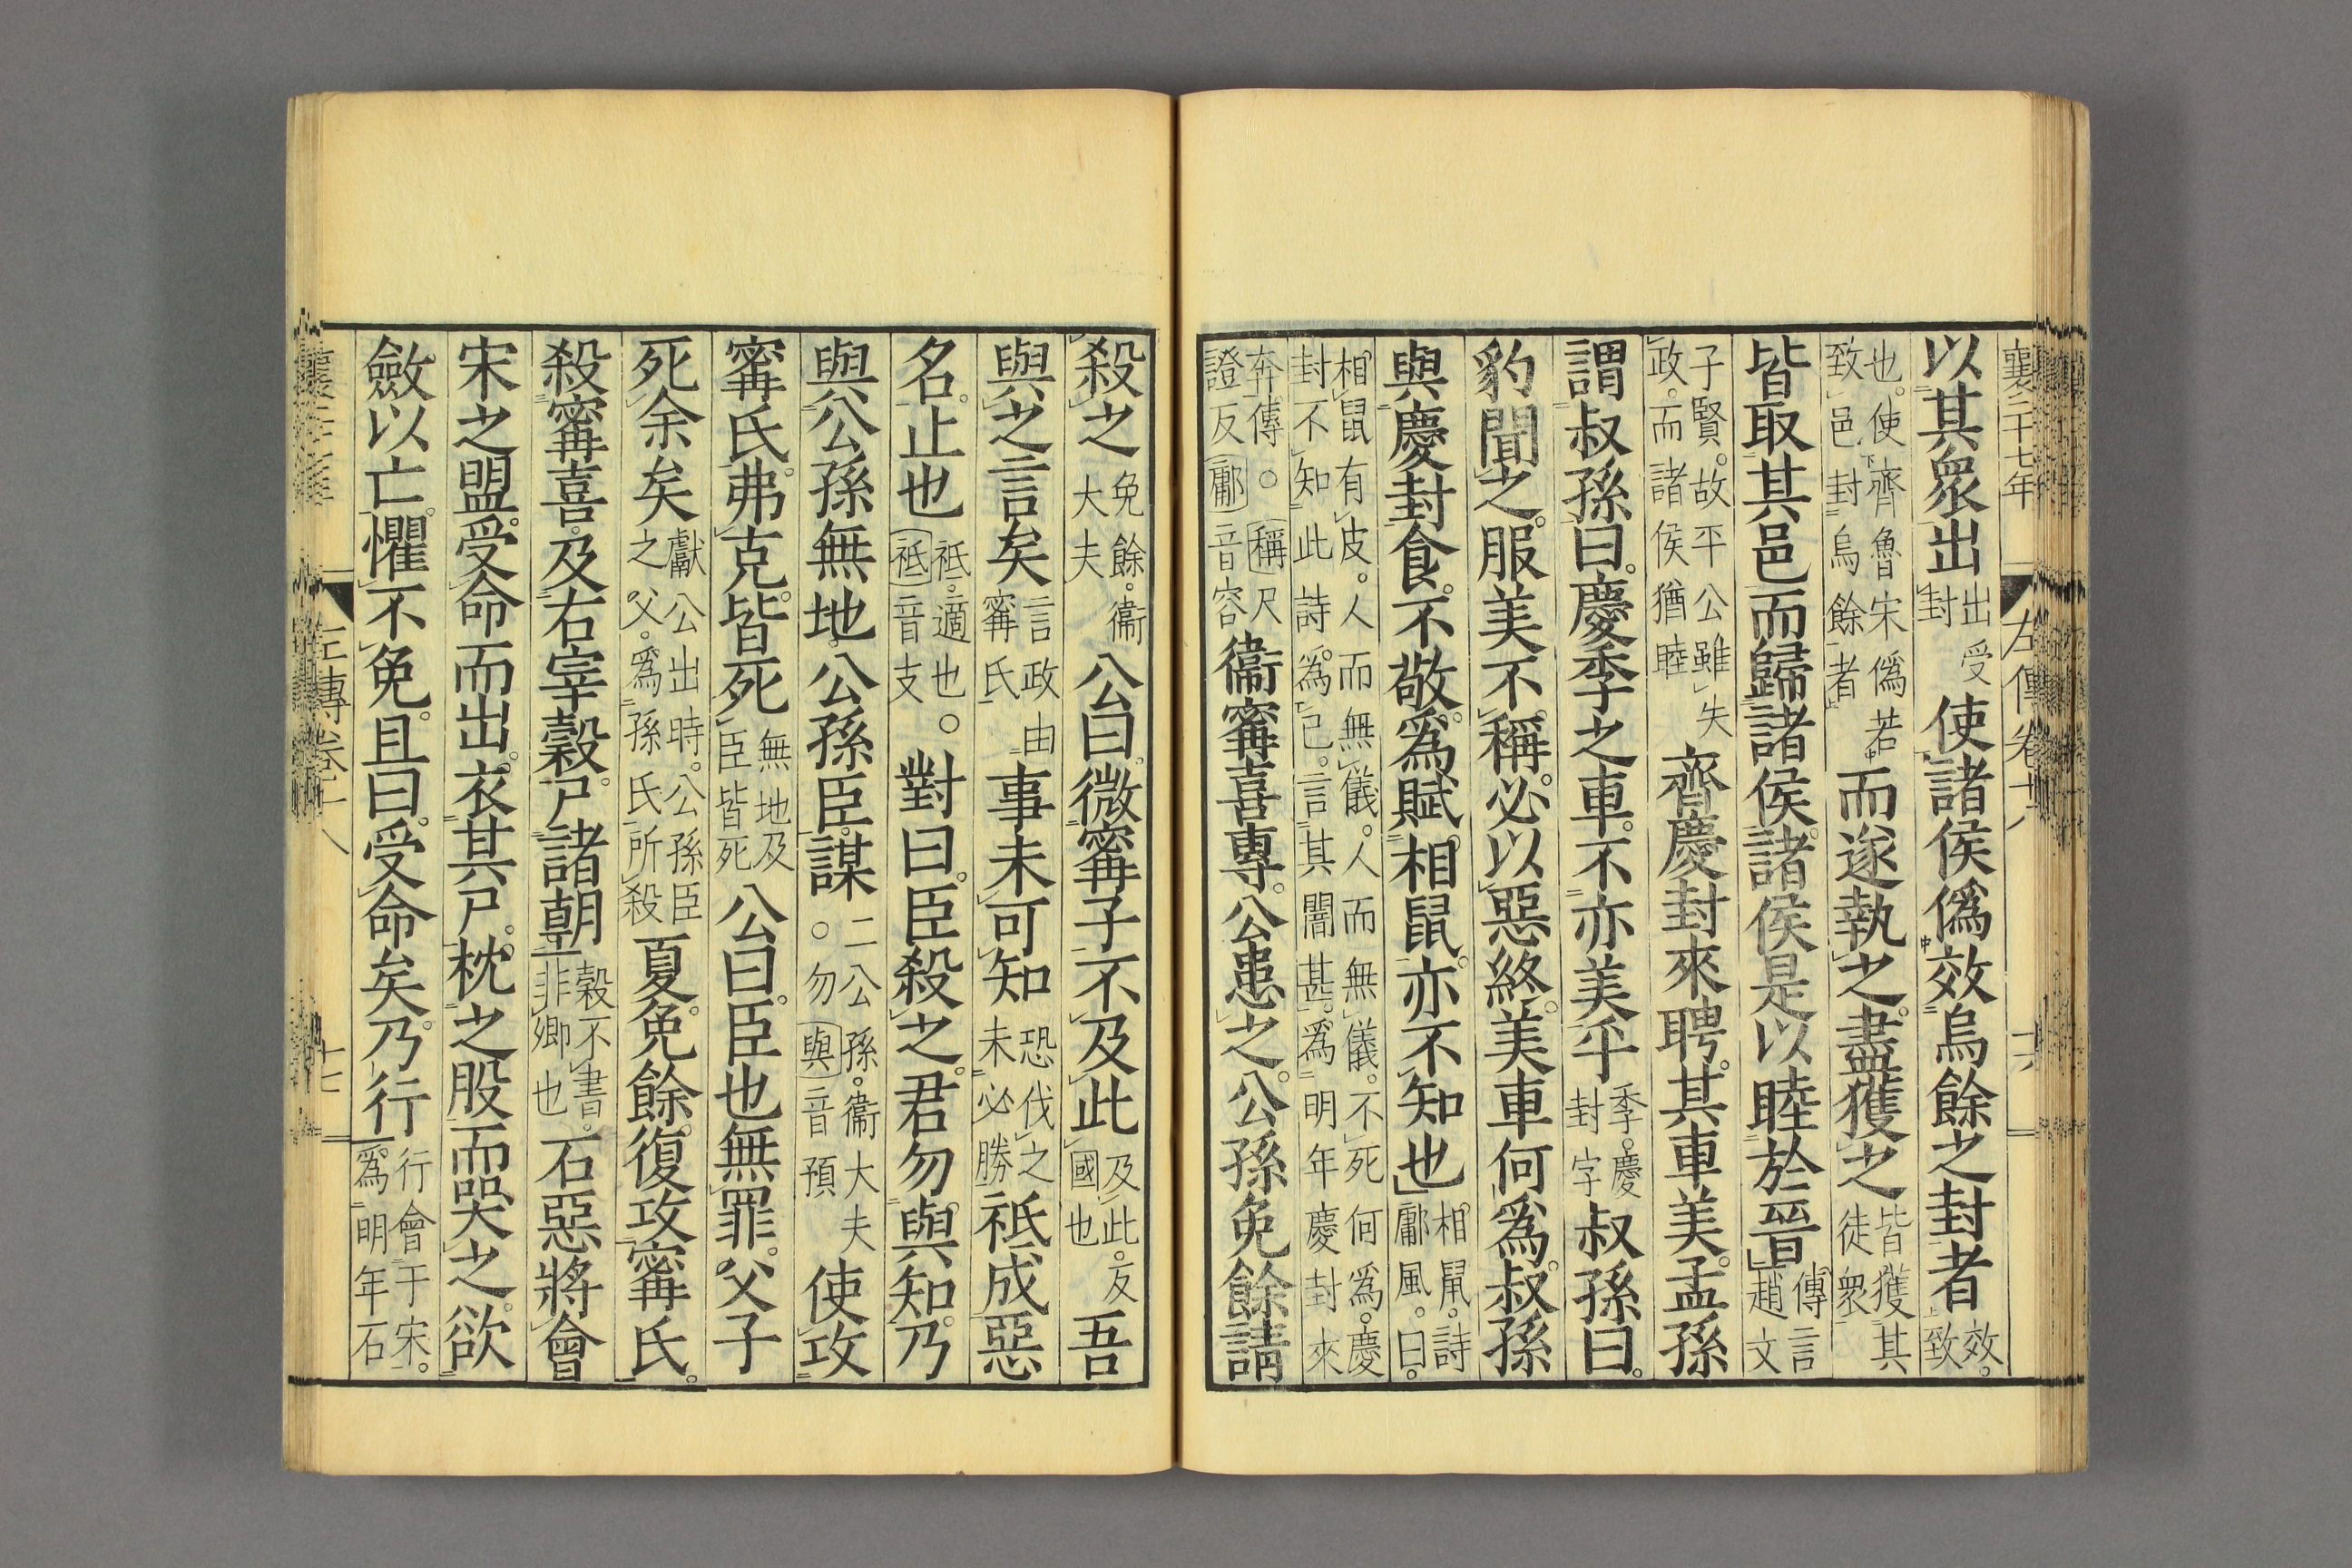 襄二十七年 左傳卷十八 十六
以其衆出出受封使諸侯僞效烏餘之封者效致
也使齊魯宋僞若致邑封烏餘者而遂執之盡獲之皆獲其徒衆
皆取其邑而歸諸侯諸侯是以睦於晉傳言趙文
子賢故平公雖失政而諸侯猶睦齊慶封來聘其車美孟孫
謂叔孫曰慶季之車不亦美乎季慶封字叔孫曰
豹聞之服美不稱必以惡終美車何爲叔孫
與慶封食不敬爲賦相鼠亦不知也相鼠詩鄘風曰
相鼠有皮人而無儀人而無儀不死何爲慶封不知此詩爲己言其闇甚爲明年慶封來
奔傳○稱尺證反鄘音容衞甯喜專公患之公孫免餘請
殺之免餘衞大夫公曰微甯子不及此及此反國也吾
與之言矣言政由甯氏事未可知恐伐之未必勝祗成惡
名止也祗適也○祗音支對曰臣殺之君勿與知乃
與公孫無地公孫臣謀二公孫衞大夫○勿與音預使攻
甯氏弗克皆死無地及臣皆死公曰臣也無罪父子
死余矣獻公出時公孫臣之父爲孫氏所殺夏免餘復攻甯氏
殺甯喜及右宰穀尸諸朝穀不書非卿也石惡將會
宋之盟受命而出衣其尸枕之股而哭之欲
斂以亡懼不免且曰受命矣乃行行會于宋爲明年石
左傳卷十八 十七